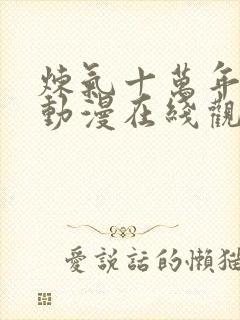 煉氣十萬年
動漫在綫觀
愛說話的懶猫